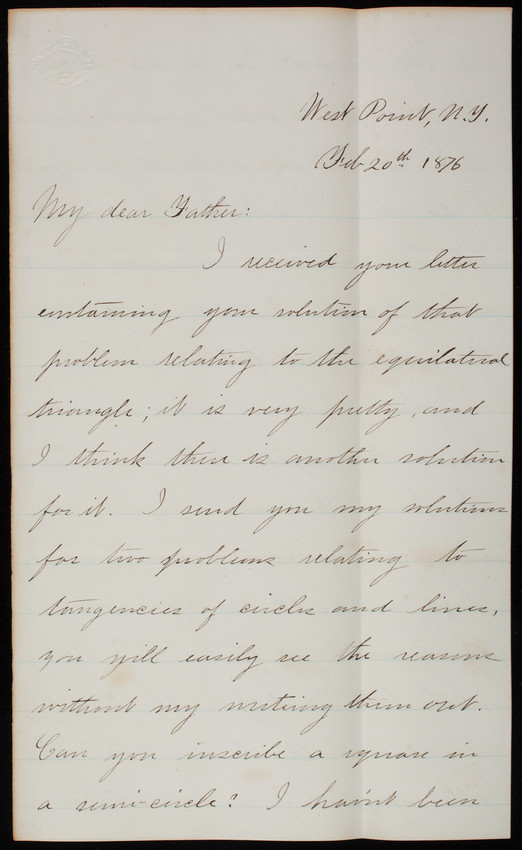 West Point, N.Y.
Feb 20th 1876
My dear Father:
I received your letter
containing your solution of that
problem relating to the equilateral
triangle; it is very pretty, and
I think there is another solution
for it. I send you my solutions
for two problems relating to
tangencies of circles and lines,
you will easily see the reasons
without my writing them out.
Can you inscribe a square in
a semi-circle? I hav'nt been